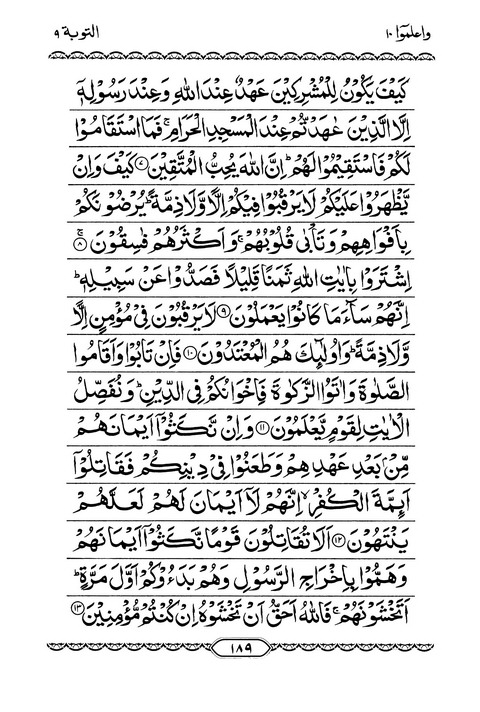 واعلموا ١٠
التوبة ٩
كَيْفَ يَكُوْنُ لِلْمُشْرِكِيْنَ عَهْدٌ عِنْدَ اللهِ وَعِنْدَ رَسُوْلِهٖۤ
اِلَّا الَّذِيْنَ عٰهَدْتُّمْ عِنْدَ الْمَسْجِدِ الْحَرَامِ ۚ فَمَا اسْتَقَامُوْا
لَكُمْ فَاسْتَقِيْمُوْا لَهُمْ ؕ اِنَّ اللهَ يُحِبُّ الْمُتَّقِيْنَ ۝٧ كَيْفَ وَاِنْ
يَّظْهَرُوْا عَلَيْكُمْ لَا يَرْقُبُوْا فِيْكُمْ اِلًّا وَّلَا ذِمَّةً ؕ يُرْضُوْنَكُمْ
بِاَفْوَاهِهِمْ وَتَاْبٰى قُلُوْبُهُمْ ۚ وَاَكْثَرُهُمْ فٰسِقُوْنَ ۝٨ۚ
اِشْتَرَوْا بِاٰيٰتِ اللهِ ثَمَنًا قَلِيْلًا فَصَدُّوْا عَنْ سَبِيْلِهٖ ؕ
اِنَّهُمْ سَآءَ مَا كَانُوْا يَعْمَلُوْنَ ۝٩ لَا يَرْقُبُوْنَ فِيْ مُؤْمِنٍ اِلًّا
وَّلَا ذِمَّةً ؕ وَاُولٰٓئِكَ هُمُ الْمُعْتَدُوْنَ ۝١٠ فَاِنْ تَابُوْا وَاَقَامُوا
الصَّلٰوةَ وَاٰتَوُا الزَّكٰوةَ فَاِخْوَانُكُمْ فِي الدِّيْنِ ؕ وَنُفَصِّلُ
الْاٰيٰتِ لِقَوْمٍ يَّعْلَمُوْنَ ۝١١ وَاِنْ نَّكَثُوْۤا اَيْمَانَهُمْ
مِّنْۢ بَعْدِ عَهْدِهِمْ وَطَعَنُوْا فِيْ دِيْنِكُمْ فَقَاتِلُوْۤا
اَئِمَّةَ الْكُفْرِ ۙ اِنَّهُمْ لَاۤ اَيْمَانَ لَهُمْ لَعَلَّهُمْ
يَنْتَهُوْنَ ۝١٢ اَلَا تُقَاتِلُوْنَ قَوْمًا نَّكَثُوْۤا اَيْمَانَهُمْ
وَهَمُّوْا بِاِخْرَاجِ الرَّسُوْلِ وَهُمْ بَدَءُوْكُمْ اَوَّلَ مَرَّةٍ ؕ
اَتَخْشَوْنَهُمْ ۚ فَاللهُ اَحَقُّ اَنْ تَخْشَوْهُ اِنْ كُنْتُمْ مُّؤْمِنِيْنَ ۝١٣
١٨٩